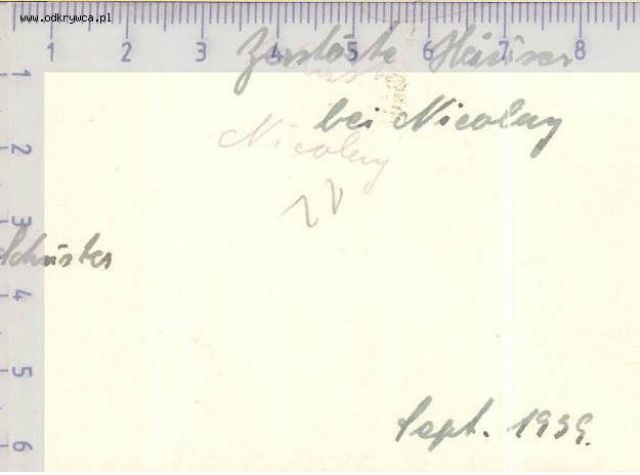 www.odkrywca.pl
1 2 3 4 5 6 7 8
Zerstörte Häuser
bei Nicolay
Nicolay
Schuster
Sept. 1939.
1
2
3
4
5
6